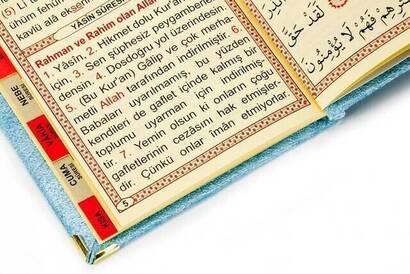 (5) Lî
kavlü alâ eksen
YÂSİN SÛRESİ
Rahman ve Rahim olan Allah
1. Yâsin. 2. Hikmet dolu Kur'an
3. Sen şüphesiz peygamberler
densin. 4. Dosdoğru yol üzerindesin.
5. (Bu Kur'an) Gâlip ve çok merha
metli Allah tarafından indirilmiştir. 6.
Babaları uyarılmamış, bu yüzden
kendileri de gaflet içinde kalmış bir
toplumu uyarman için indirilmiş-
tir. 7. Yemin olsun ki onların çoğu
gafletlerinin cezasını hak etmişler-
dir. Çünkü onlar îmân etmiyorlar.
5
NEBE
SÛRESİ
VAKIA
CUMA
SÛRESİ
KISA
لَقَدْ حَقَّ
فَهُمْ لَا يُؤْمِنُونَ